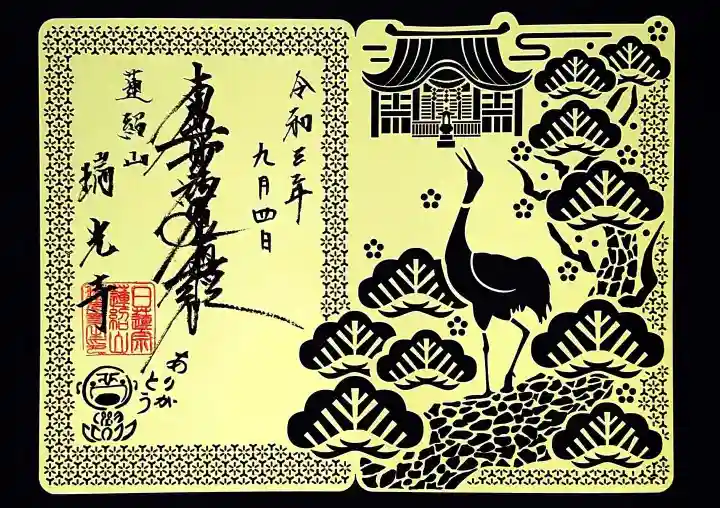 令和三年
九月四日
南無妙法蓮華経
蓮紹山
光寺
日蓮宗
蓮紹山
ありが
とう